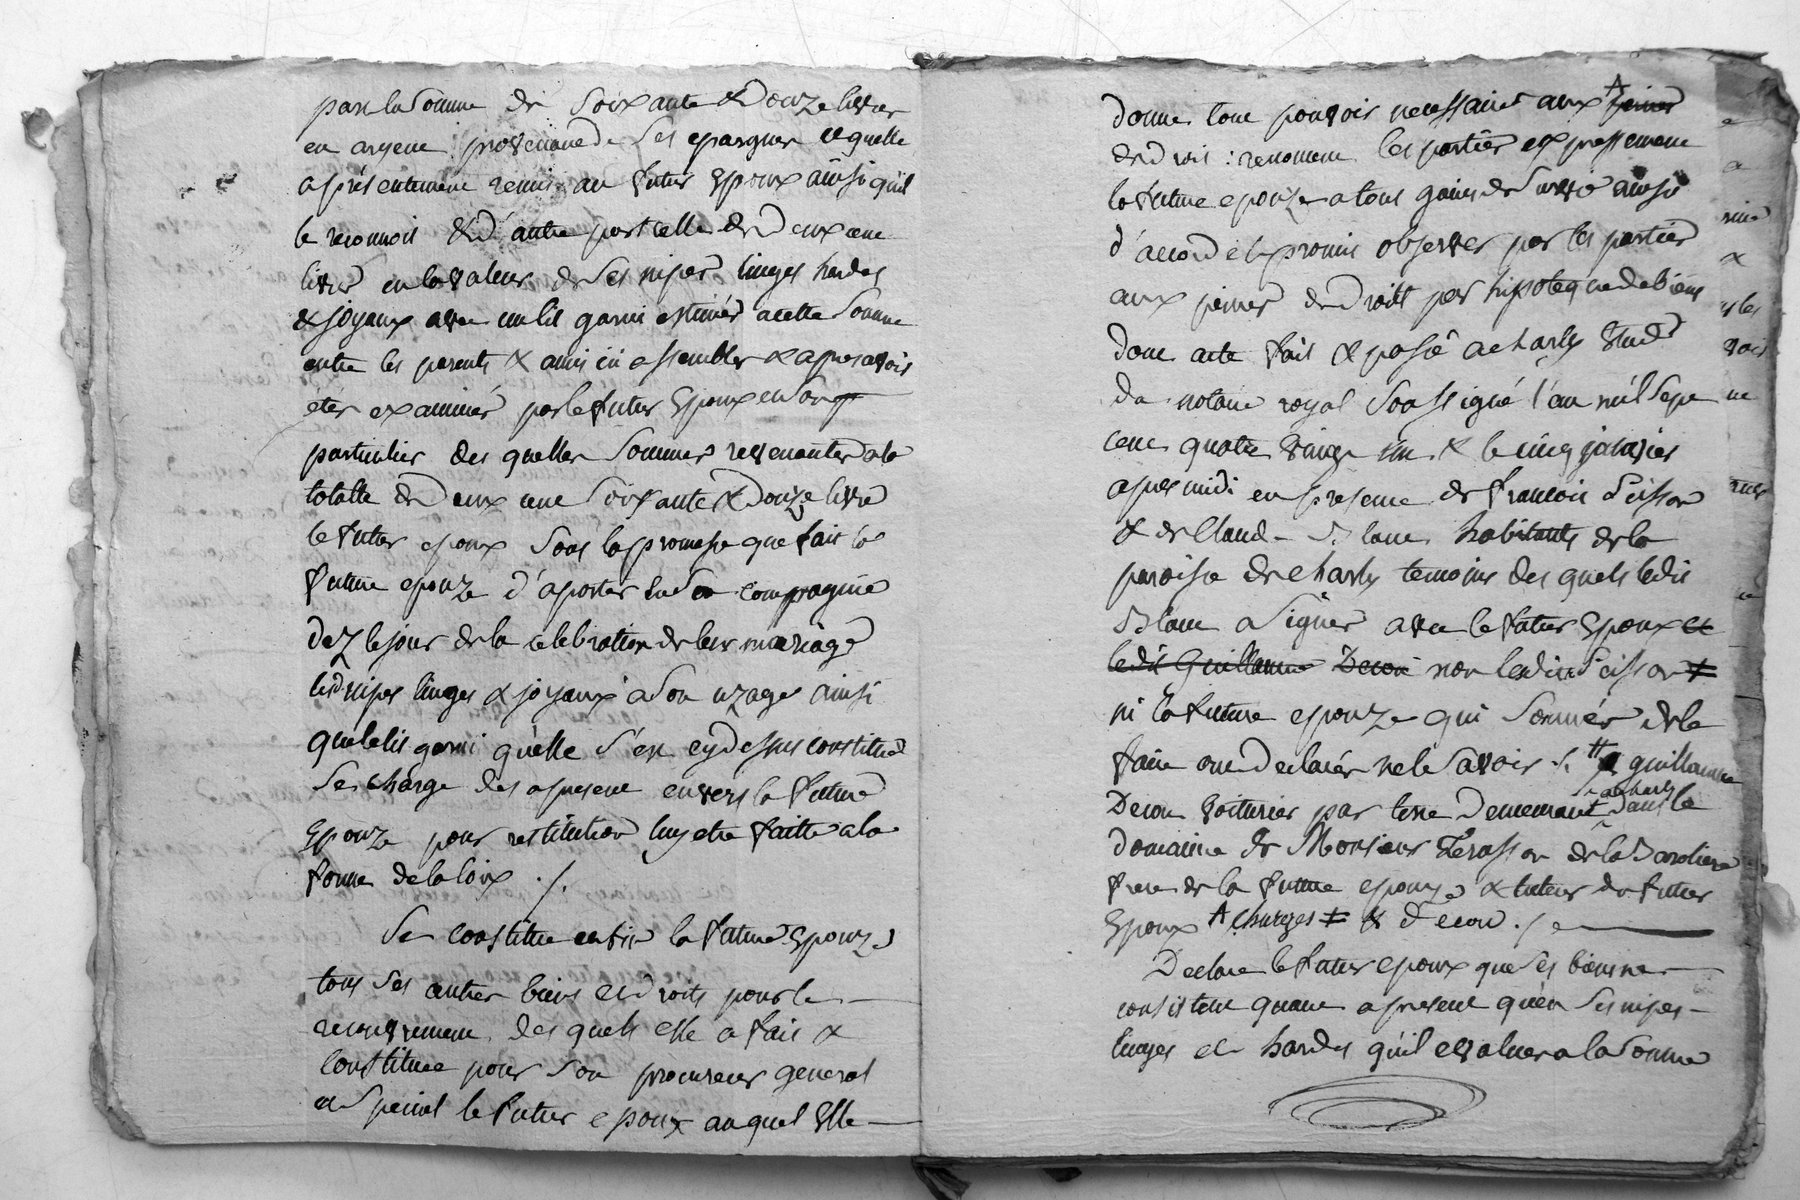 par la Somme de Soixante & Douze livres
en argent provenant de Ses epargnes laquelle
a présentement remis au futur Epoux ainsi quil
le reconnois & d'autre part celle de Deux cent
livres en la valeur de Ses nipes linges hardes
& joyaux avec un lit garni estimés a cette Somme
entre les parents & amis ici assemblés & apres avoir
étés examinés par le futur Epoux en Son
particulier des quelles Sommes revenantes a la
totalle de Deux cent Soixante & Douze livre
le futur epoux Sous la promesse que fait la
future epouze d'aporter en Sa compagnie
Dez le jour de la celebration de leur mariage
lesd nipes linges & joyaux a Son uzage ainsi
que le lit garni quelle S'est cy dessus constitué
Se charge des apresent envers la future
Epouze pour restitution luy etre faitte a la
forme de la loix ./.
Se constitue enfin la future Epouze
tous Ses autres biens et droits pour le
recouvrement des quels elle a fait &
Constitué pour Son procureur general
et Special le futur epoux auquel Elle
donne tout pouvoir necessaires aux A
de droit : renoncent les parties expressement
la future epouze a tous gains de Survie ainsi
d'accord et promis observer par les parties
aux peines de Droitt par hipoteque de biens
Dont acte fait & passé a charly Etude
Du notaire royal Soussigné l'an mil Sept
cent quatre vingt un & le cinq janvier
apres midi en presence de francois Seisson
& de Claude Blanc habitants de la
paroisse de charly temoins des quels ledit
Blanc a Signer avec le futur Epoux et
ledit Guillaume Decou non ledit Seisson ≠
ni la future epouze qui Sommés de le
faire ont Declarés ne le Savoir /. # guillaume
Decou voiturier par terre Demeurant a charly Dans le
Domaine de Monsieur Terasson de la Baroliere
frere de la future epouze & tuteur du futur
Epoux A charges ≠ & Decou ./.
Declare le futur epoux que Ses biens ne
consistent quant apresent quèn Ses nipes
linges et hardes quil evaluer a la Somme